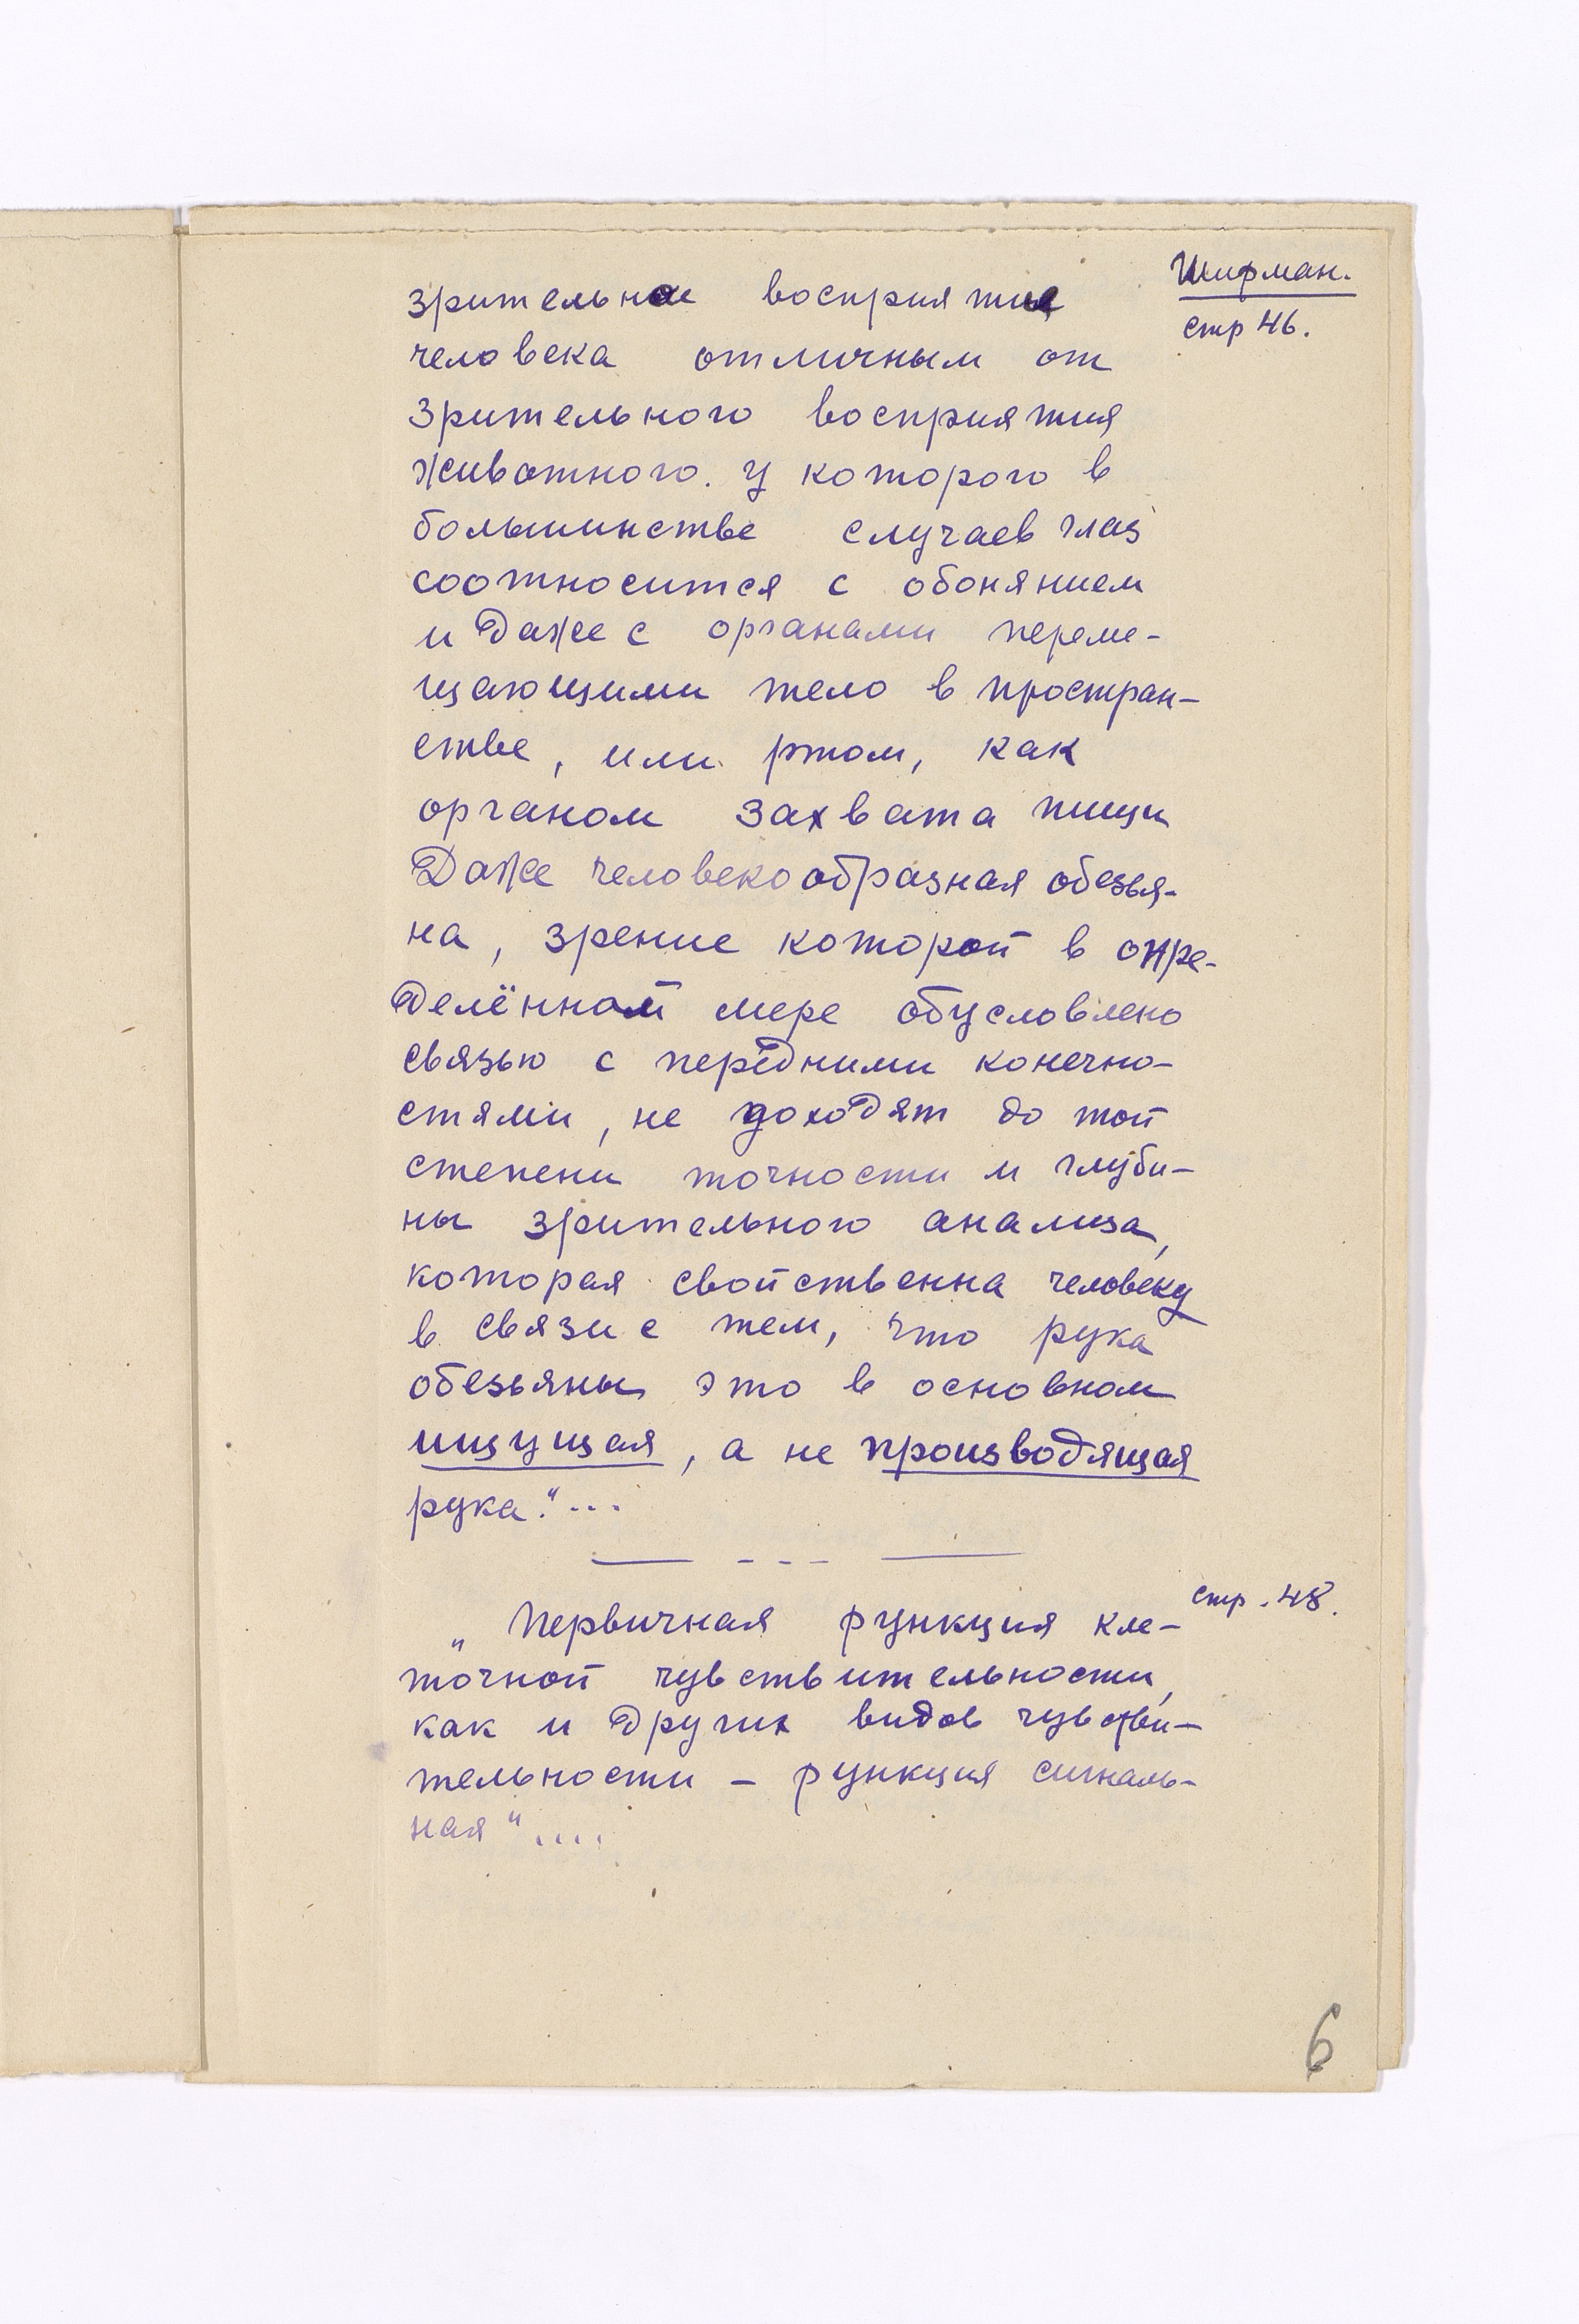 Шифман.
стр 46.
зрительное восприятие
человека отличным от
зрительного восприятия
животного. у которого в
большинстве случаев глаз
соотносится с обонянием
и даже с органами переме-
щающими тело в простран-
стве, или ртом, как
органом захвата пищи
Даже человекообразная обезья-
на, зрение которой в опре-
делённой мере обусловлено
связью с передними конечно-
стями, не доходят до той
степени точности и глуби-
ны зрительного анализа,
которая свойственна человеку
в связи с тем, что рука
обезьяны это в основном
ищущая, а не производящая
рука."...
— - - - —
стр. 48.
„Первичная функция кле-
точной чувствительности,
как и других видов чувстви-
тельности – функция сигналь-
ная"....
6